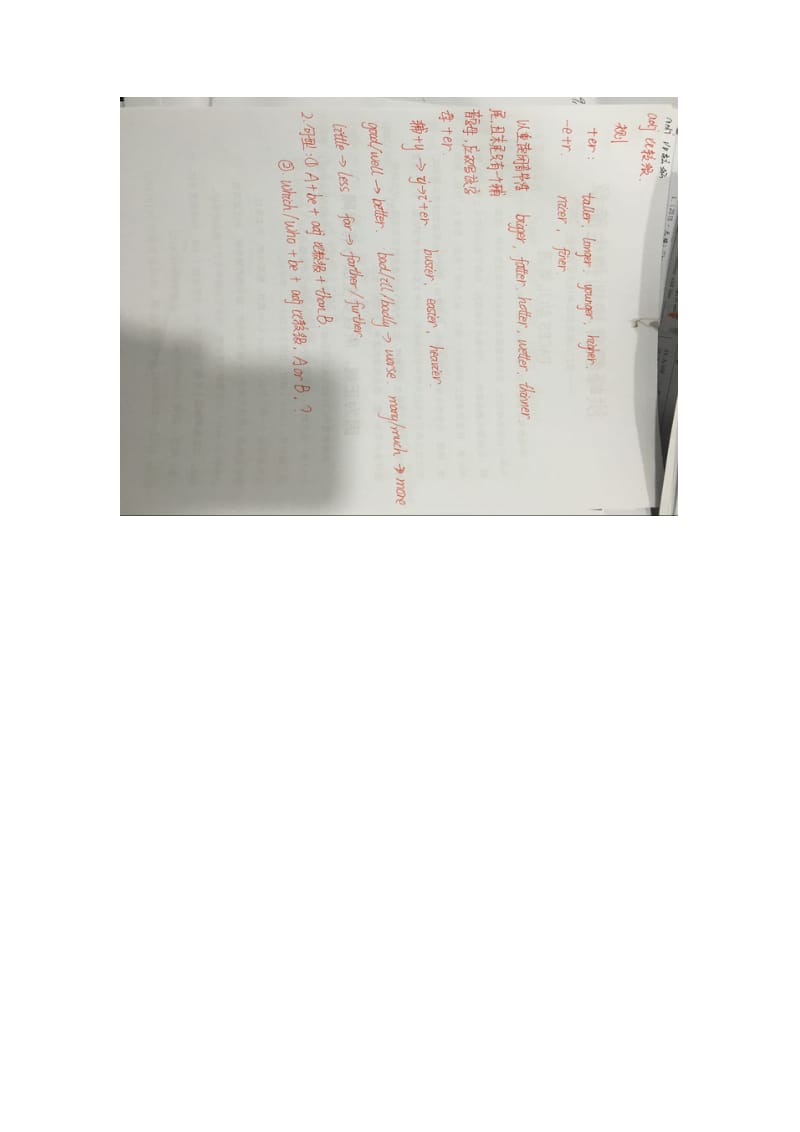 adj 比较级.
规则
+er: taller, longer, younger, higher.
-e+r. nicer, finer
以重读闭音节结 bigger, fatter, hotter, wetter, thinner
尾,且末尾只有一个辅
音字母,应双写该字
母+er.
辅+y → y→i+er busier, easier, heavier.
good/well → better. bad/ill/badly → worse. many/much → more
little → less far → farther/further.
2.句型:① A+be+adj 比较级+than B.
②. Which/Who+be+adj 比较级, A or B.?